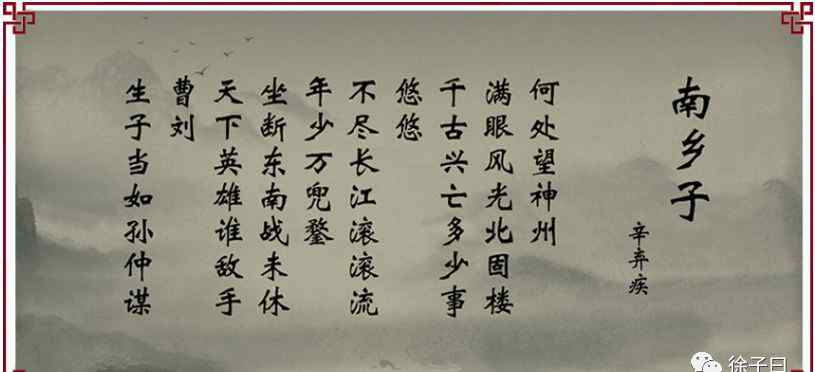 南乡子
辛弃疾
何处望神州
满眼风光北固楼
千古兴亡多少事
悠悠
不尽长江滚滚流
年少万兜鍪
坐断东南战未休
天下英雄谁敌手
曹刘
生子当如孙仲谋
徐子曰